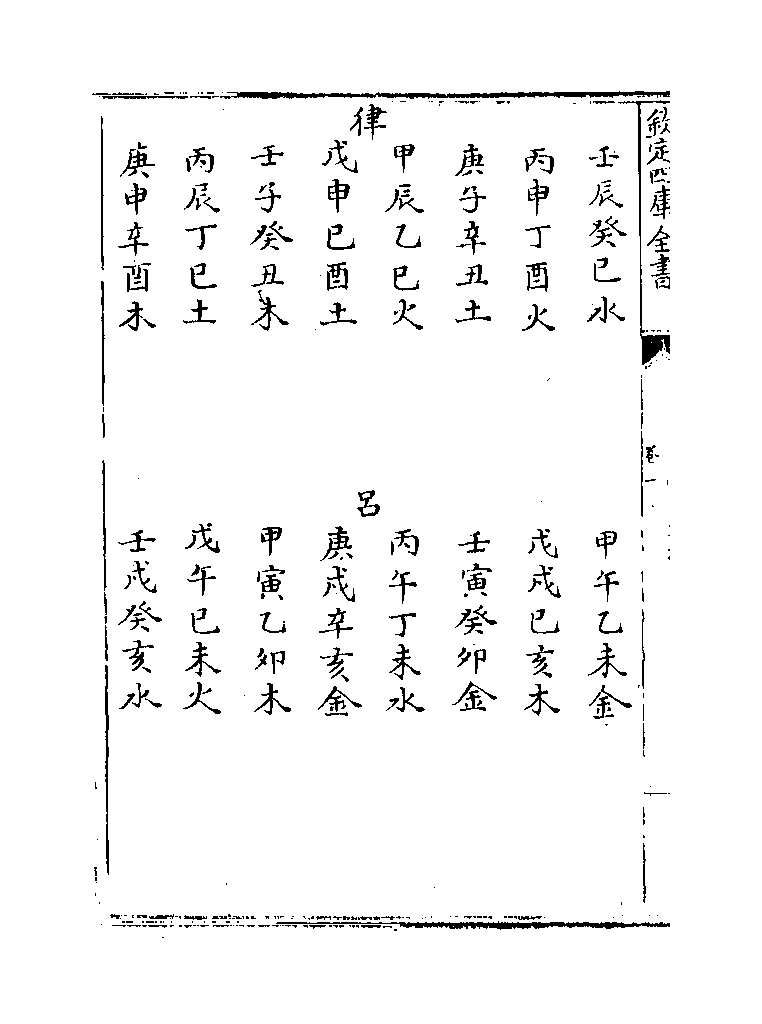 欽定四庫全書
卷一
壬辰癸巳水　甲午乙未金
丙申丁酉火　戊戌己亥木
庚子辛丑土　壬寅癸卯金
甲辰乙巳火　丙午丁未水
律　呂
戊申己酉土　庚戌辛亥金
壬子癸丑木　甲寅乙卯木
丙辰丁巳土　戊午己未火
庚申辛酉木　壬戌癸亥水